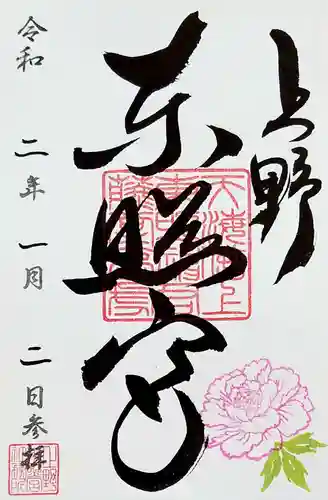 上野
東照宮
令和 二年 一月 二日参拝